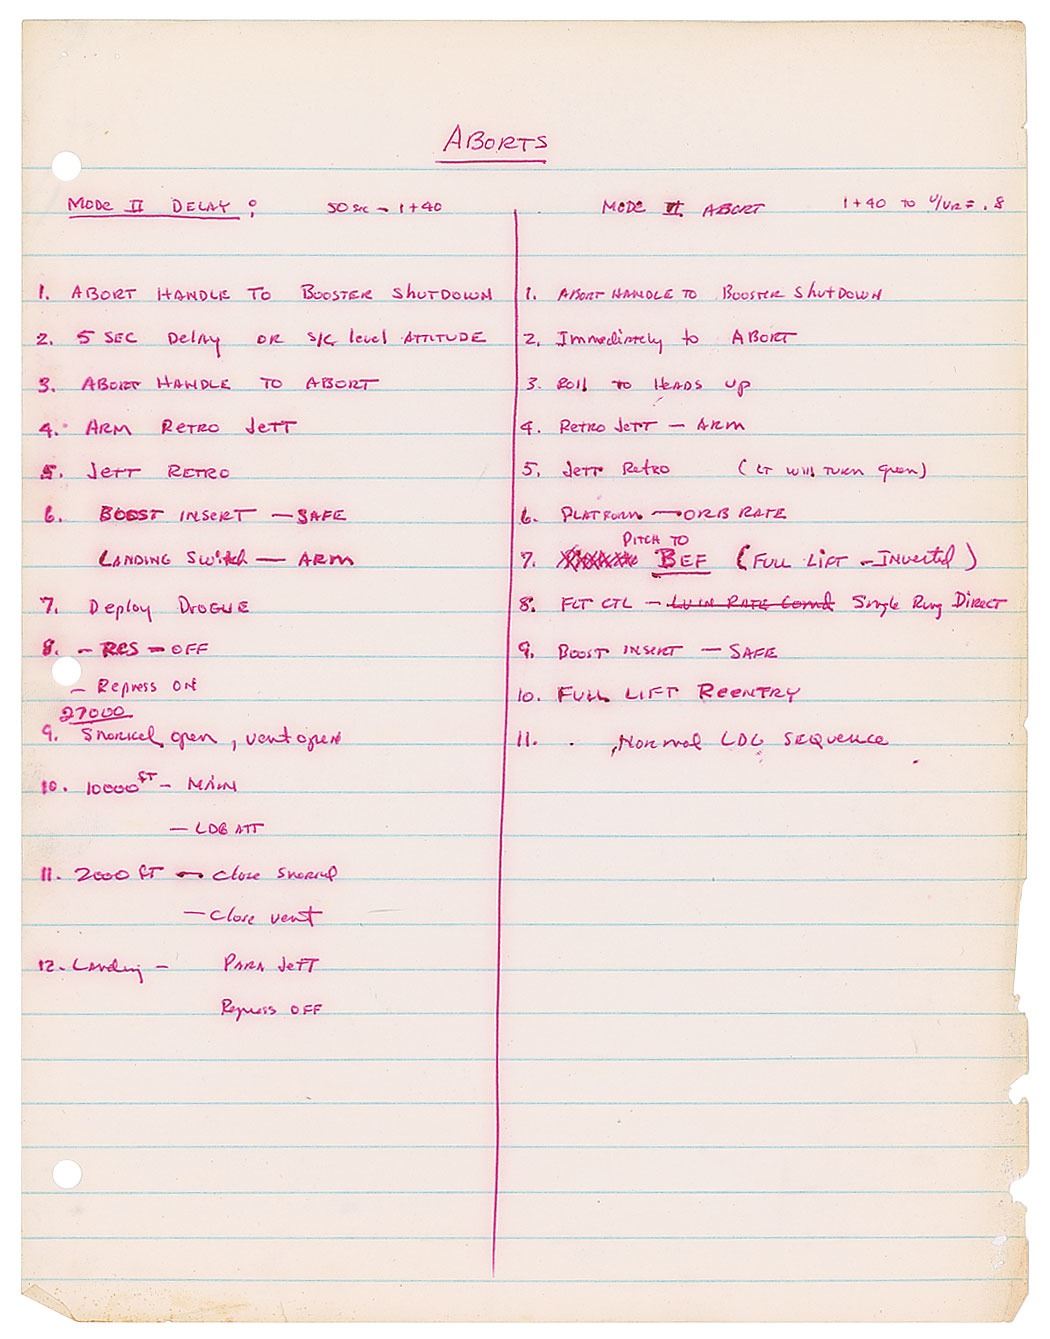 ABORTS
MODE II DELAY: 50 sec - 1+40
1. ABORT HANDLE TO BOOSTER SHUTDOWN
2. 5 SEC Delay OR S/C level ATTITUDE
3. ABORT HANDLE TO ABORT
4. ARM RETRO JETT
5. JETT RETRO
6. BOOST INSERT — SAFE
LANDING Switch — ARM
7. Deploy DROGUE
8. - RCS - OFF
- Repress ON
27000
9. Snorkel open, vent open
10. 10000 FT - MAIN
- LDG ATT
11. 2000 FT - Close Snorkel
- Close vent
12. Landing - PARA JETT
Repress OFF
MODE II ABORT 1+40 TO V/VR = .8
1. ABORT HANDLE TO BOOSTER ShutDOWN
2. Immediately to ABORT
3. Roll to HEADS up
4. Retro Jett - ARM
5. Jett Retro (LT will turn green)
6. PLATFORM — ORB RATE
PITCH TO
7. BEF (FULL LIFT - Inverted)
8. FLT CTL - Single Ring DIRECT
9. BOOST INSERT - SAFE
10. FULL LIFT REENTRY
11. Normal LDG SEQUENCE